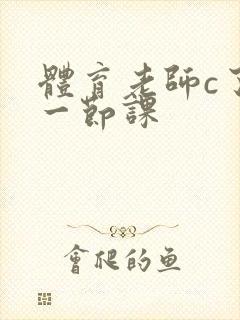 體育老師c了
一節課
會爬的鱼